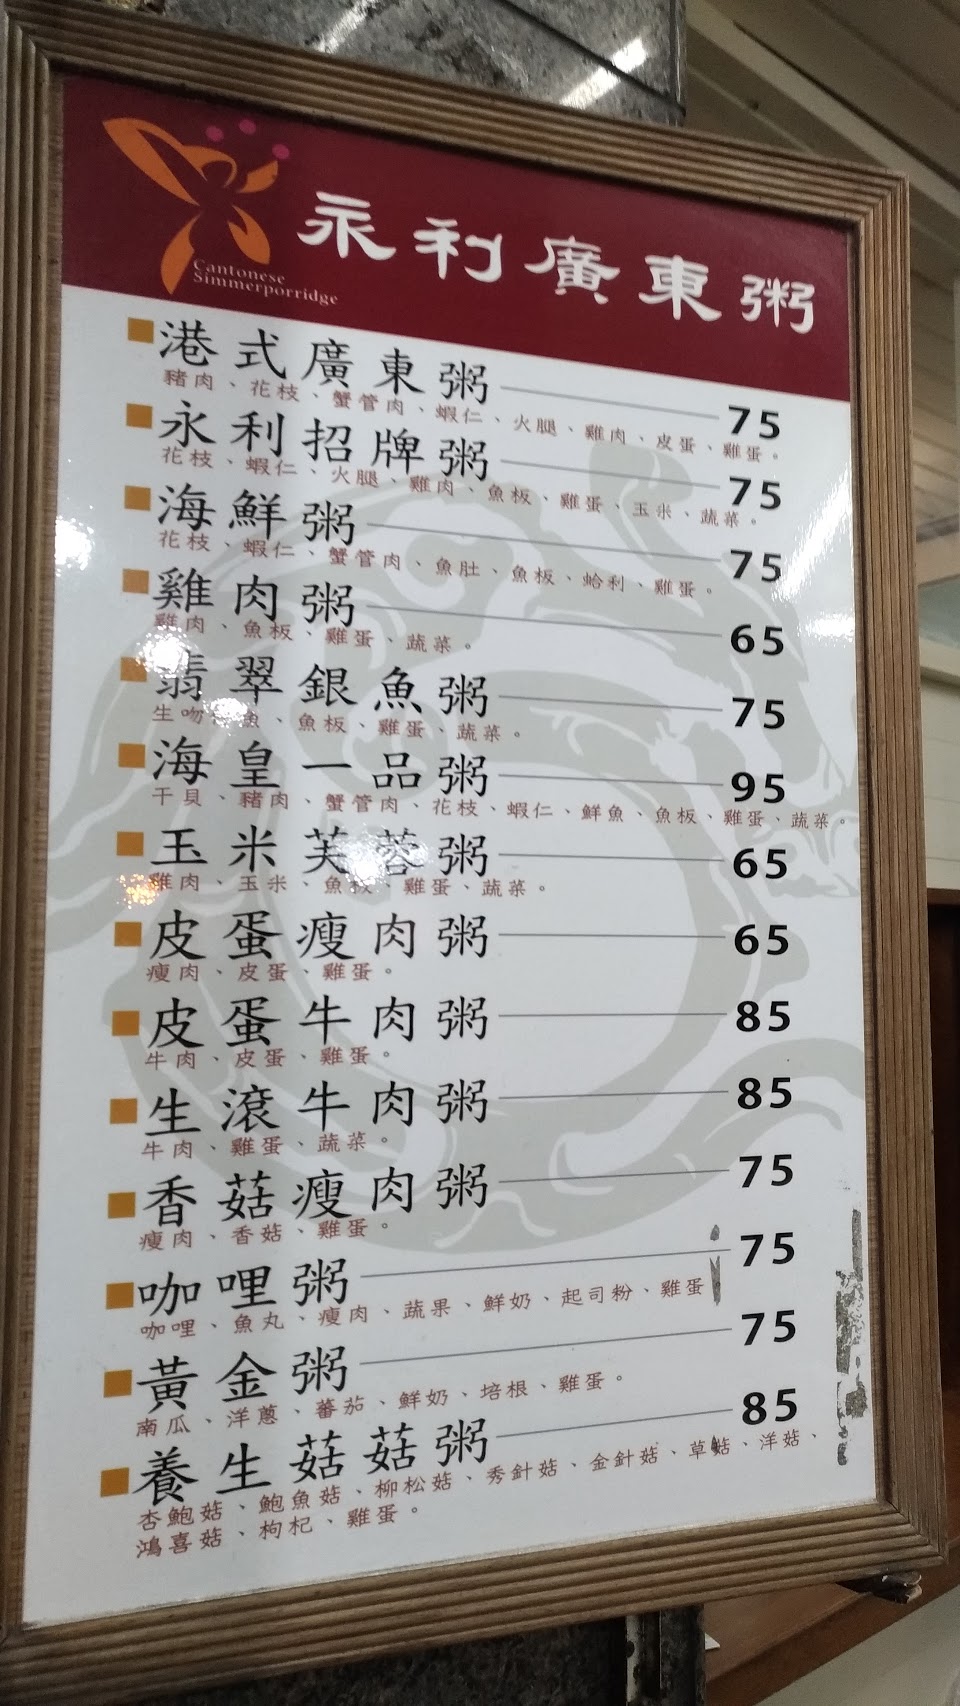 永利廣東粥
Cantonese
Simmerporridge
港式廣東粥 75
豬肉、花枝、蟹管肉、蝦仁、火腿、雞肉、皮蛋、雞蛋。
永利招牌粥 75
花枝、蝦仁、火腿、雞肉、魚板、雞蛋、玉米、蔬菜。
海鮮粥 75
花枝、蝦仁、蟹管肉、魚肚、魚板、蛤利、雞蛋。
雞肉粥 65
雞肉、魚板、雞蛋、蔬菜。
翡翠銀魚粥 75
生吻魚、魚板、雞蛋、蔬菜。
海皇一品粥 95
干貝、豬肉、蟹管肉、花枝、蝦仁、鮮魚、魚板、雞蛋、蔬菜。
玉米芙蓉粥 65
雞肉、玉米、魚板、雞蛋、蔬菜。
皮蛋瘦肉粥 65
瘦肉、皮蛋、雞蛋。
皮蛋牛肉粥 85
牛肉、皮蛋、雞蛋。
生滾牛肉粥 85
牛肉、雞蛋、蔬菜。
香菇瘦肉粥 75
瘦肉、香菇、雞蛋。
咖哩粥 75
咖哩、魚丸、瘦肉、蔬果、鮮奶、起司粉、雞蛋
黃金粥 75
南瓜、洋蔥、蕃茄、鮮奶、培根、雞蛋。
養生菇菇粥 85
杏鮑菇、鮑魚菇、柳松菇、秀針菇、金針菇、草菇、洋菇、
鴻喜菇、枸杞、雞蛋。